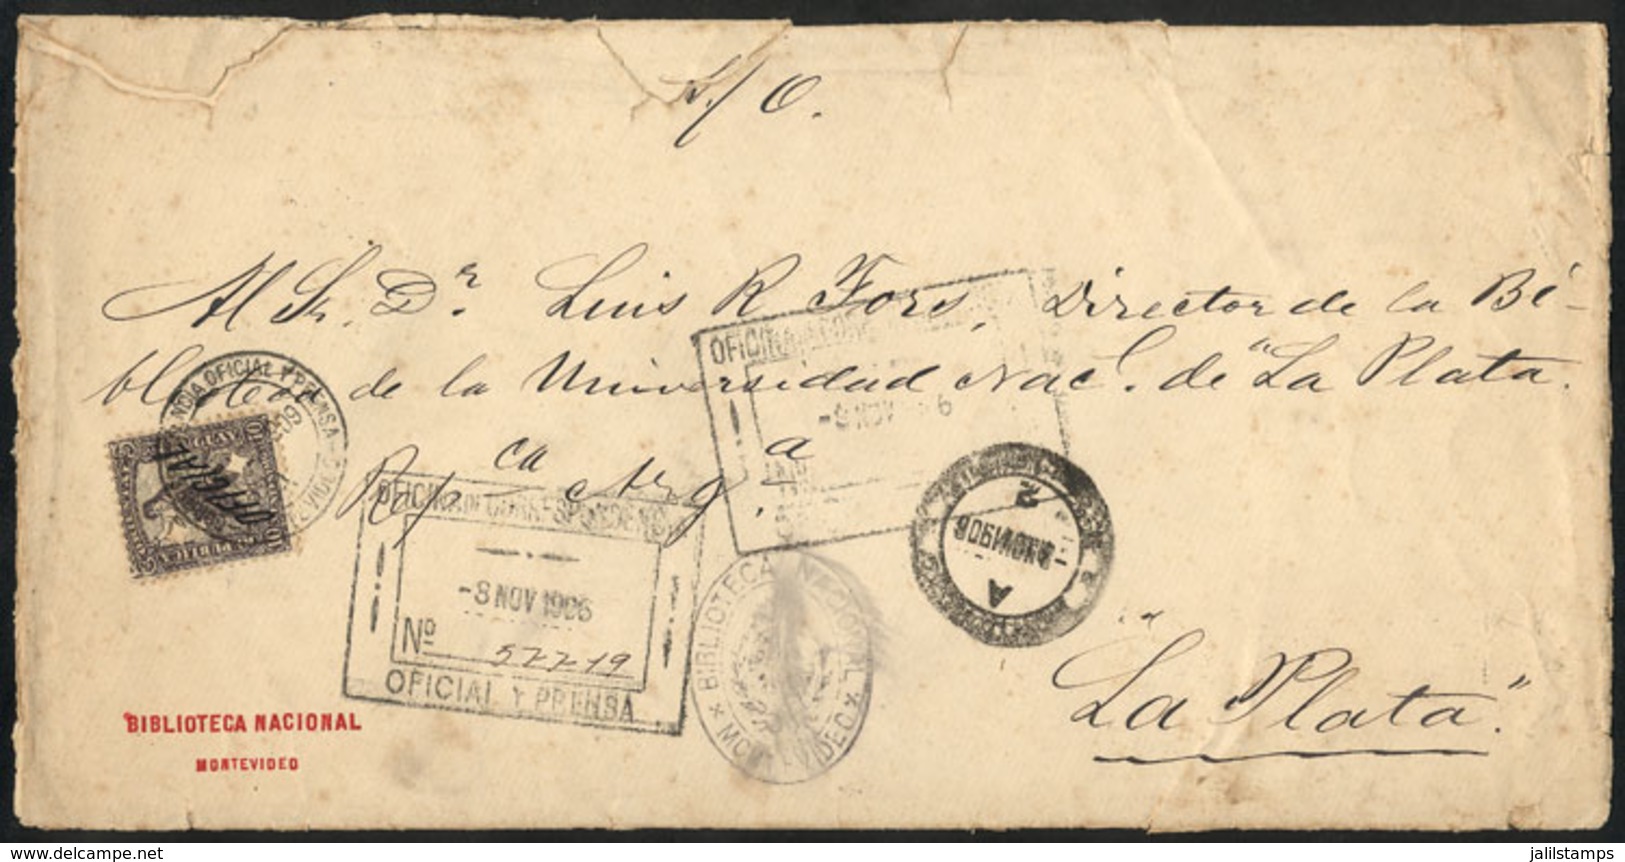 S./O.
Al Sr. Dr. Luis R Fors, Director de la Bi-
blioteca de la Universidad Nac.l de "La Plata.
Rep.ca Arg.a
"La Plata".
OFICIAL Y PRENSA
OFICIAL
OFICINA
-8 NOV 6
OFICINA DE CORRESPONDENCIA
-8 NOV 1906
Nº 52219
OFICIAL Y PRENSA
BIBLIOTECA NACIONAL
MONTEVIDEO
2
NOV 1906
A
BIBLIOTECA NACIONAL
MONTEVIDEO
delcampe.net
jalilstamps